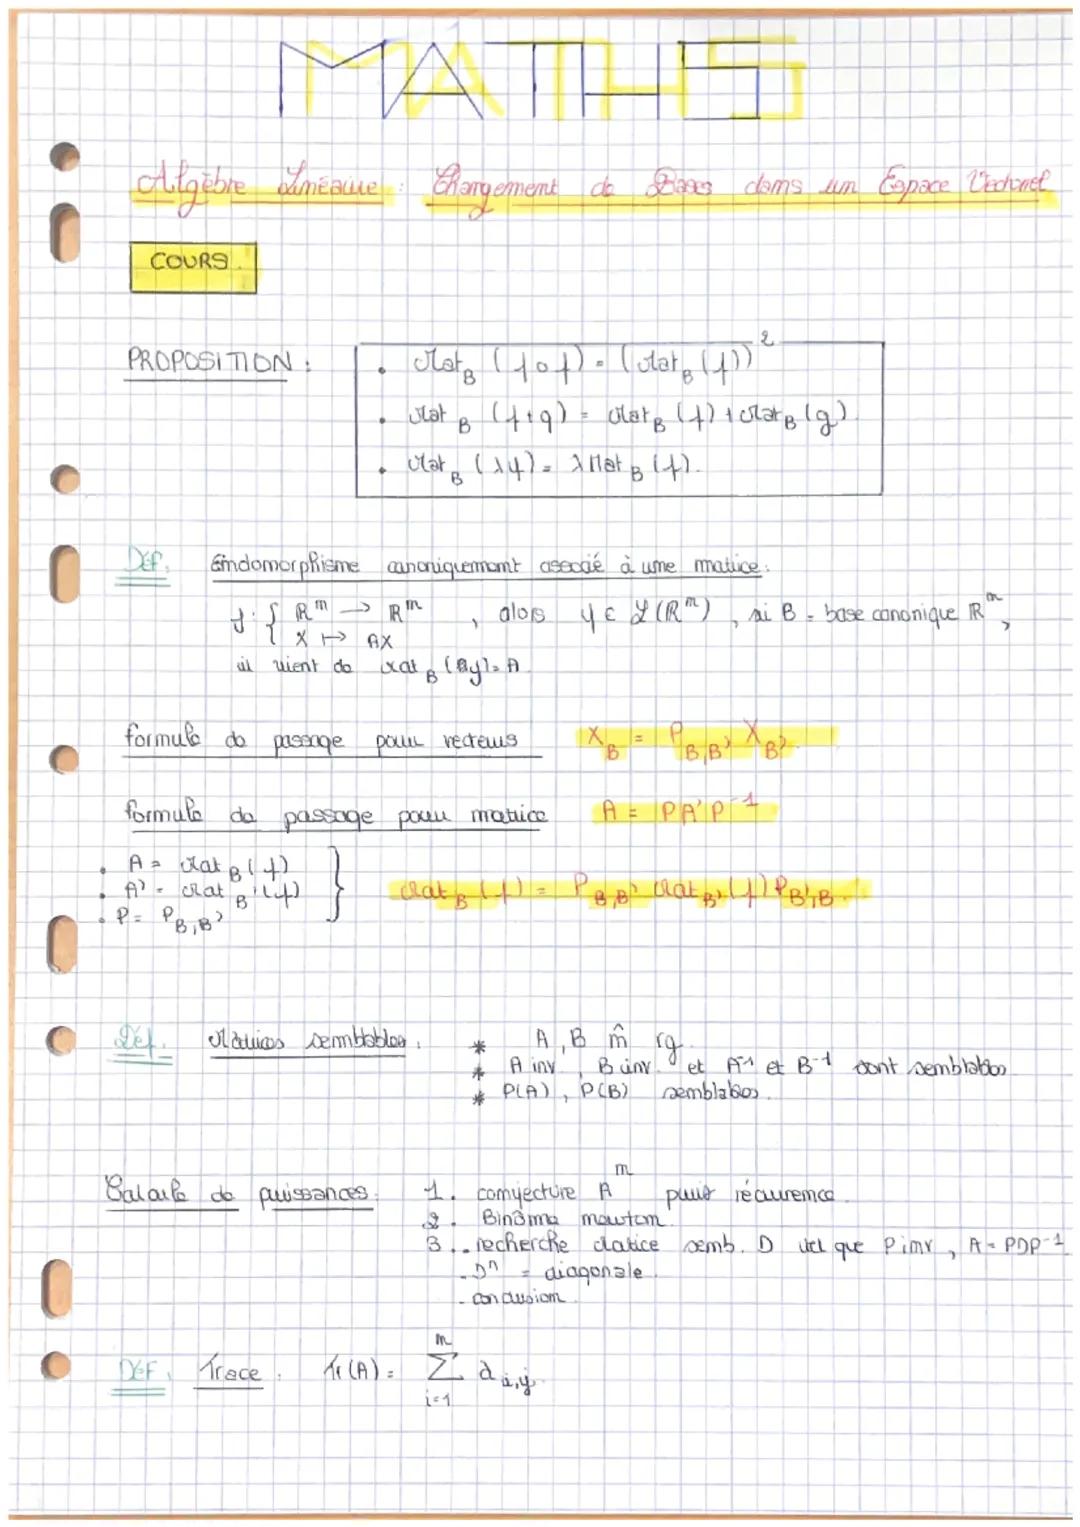 MATHS
Algèbre Linéaire : Changement de Bases dans un Espace Vectoriel
COURS.
PROPOSITION :
• Mat_B (f∘f) = (Mat_B (f))²
• Mat_B (f+g) = Mat_B (f) + Mat_B (g).
• Mat_B (λf) = λ Mat_B (f).
Déf. Endomorphisme canoniquement associé à une matrice.
f: { ℝⁿ → ℝⁿ , alors f ∈ ℒ(ℝⁿ), si B = base canonique ℝⁿ,
X ↦ AX
il vient de Mat_B (f) = A
formule de passage pour vecteurs X_B = P_B,B' X_B'
formule de passage pour matrice A = PA'P⁻¹
• A = Mat_B (f)
• A' = Mat_B' (f)
• P = P_B,B'
} Mat_B (f) = P_B,B' Mat_B' (f) P_B',B.
Déf. Matrices semblables. * A, B m̂ rg.
* A inv., B inv. et A⁻¹ et B⁻¹ sont semblables
* P(A), P(B) semblables.
Calculs de puissances. 1. conjecture Aⁿ puis récurrence.
2. Binôme newton.
3. . recherche Matrice semb. D tel que P inv, A = PDP⁻¹
. Dⁿ = diagonale.
. conclusion.
DÉF. Trace. Tr(A) = Σ_{i=1}^{n} a_{i,j}.